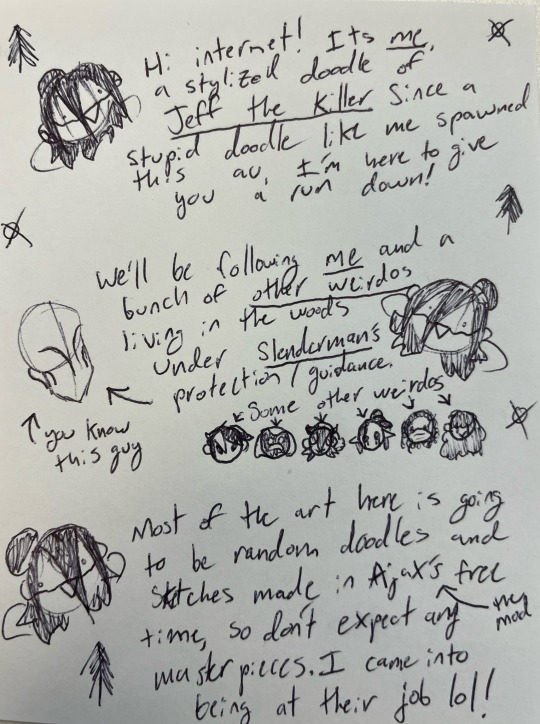 Hi internet! Its me,
a stylized doodle of
Jeff the Killer Since a
stupid doodle like me spawned
this au, I'm here to give
you a run down!
We'll be following me and a
bunch of other weirdos
living in the woods
under Slenderman's
protection/guidance.
you know
this guy
Some other weirdos
Most of the art here is going
to be random doodles and
sketches made in Ajax's free
time, so don't expect any
my mod
masterpieces. I came into
being at their job lol!